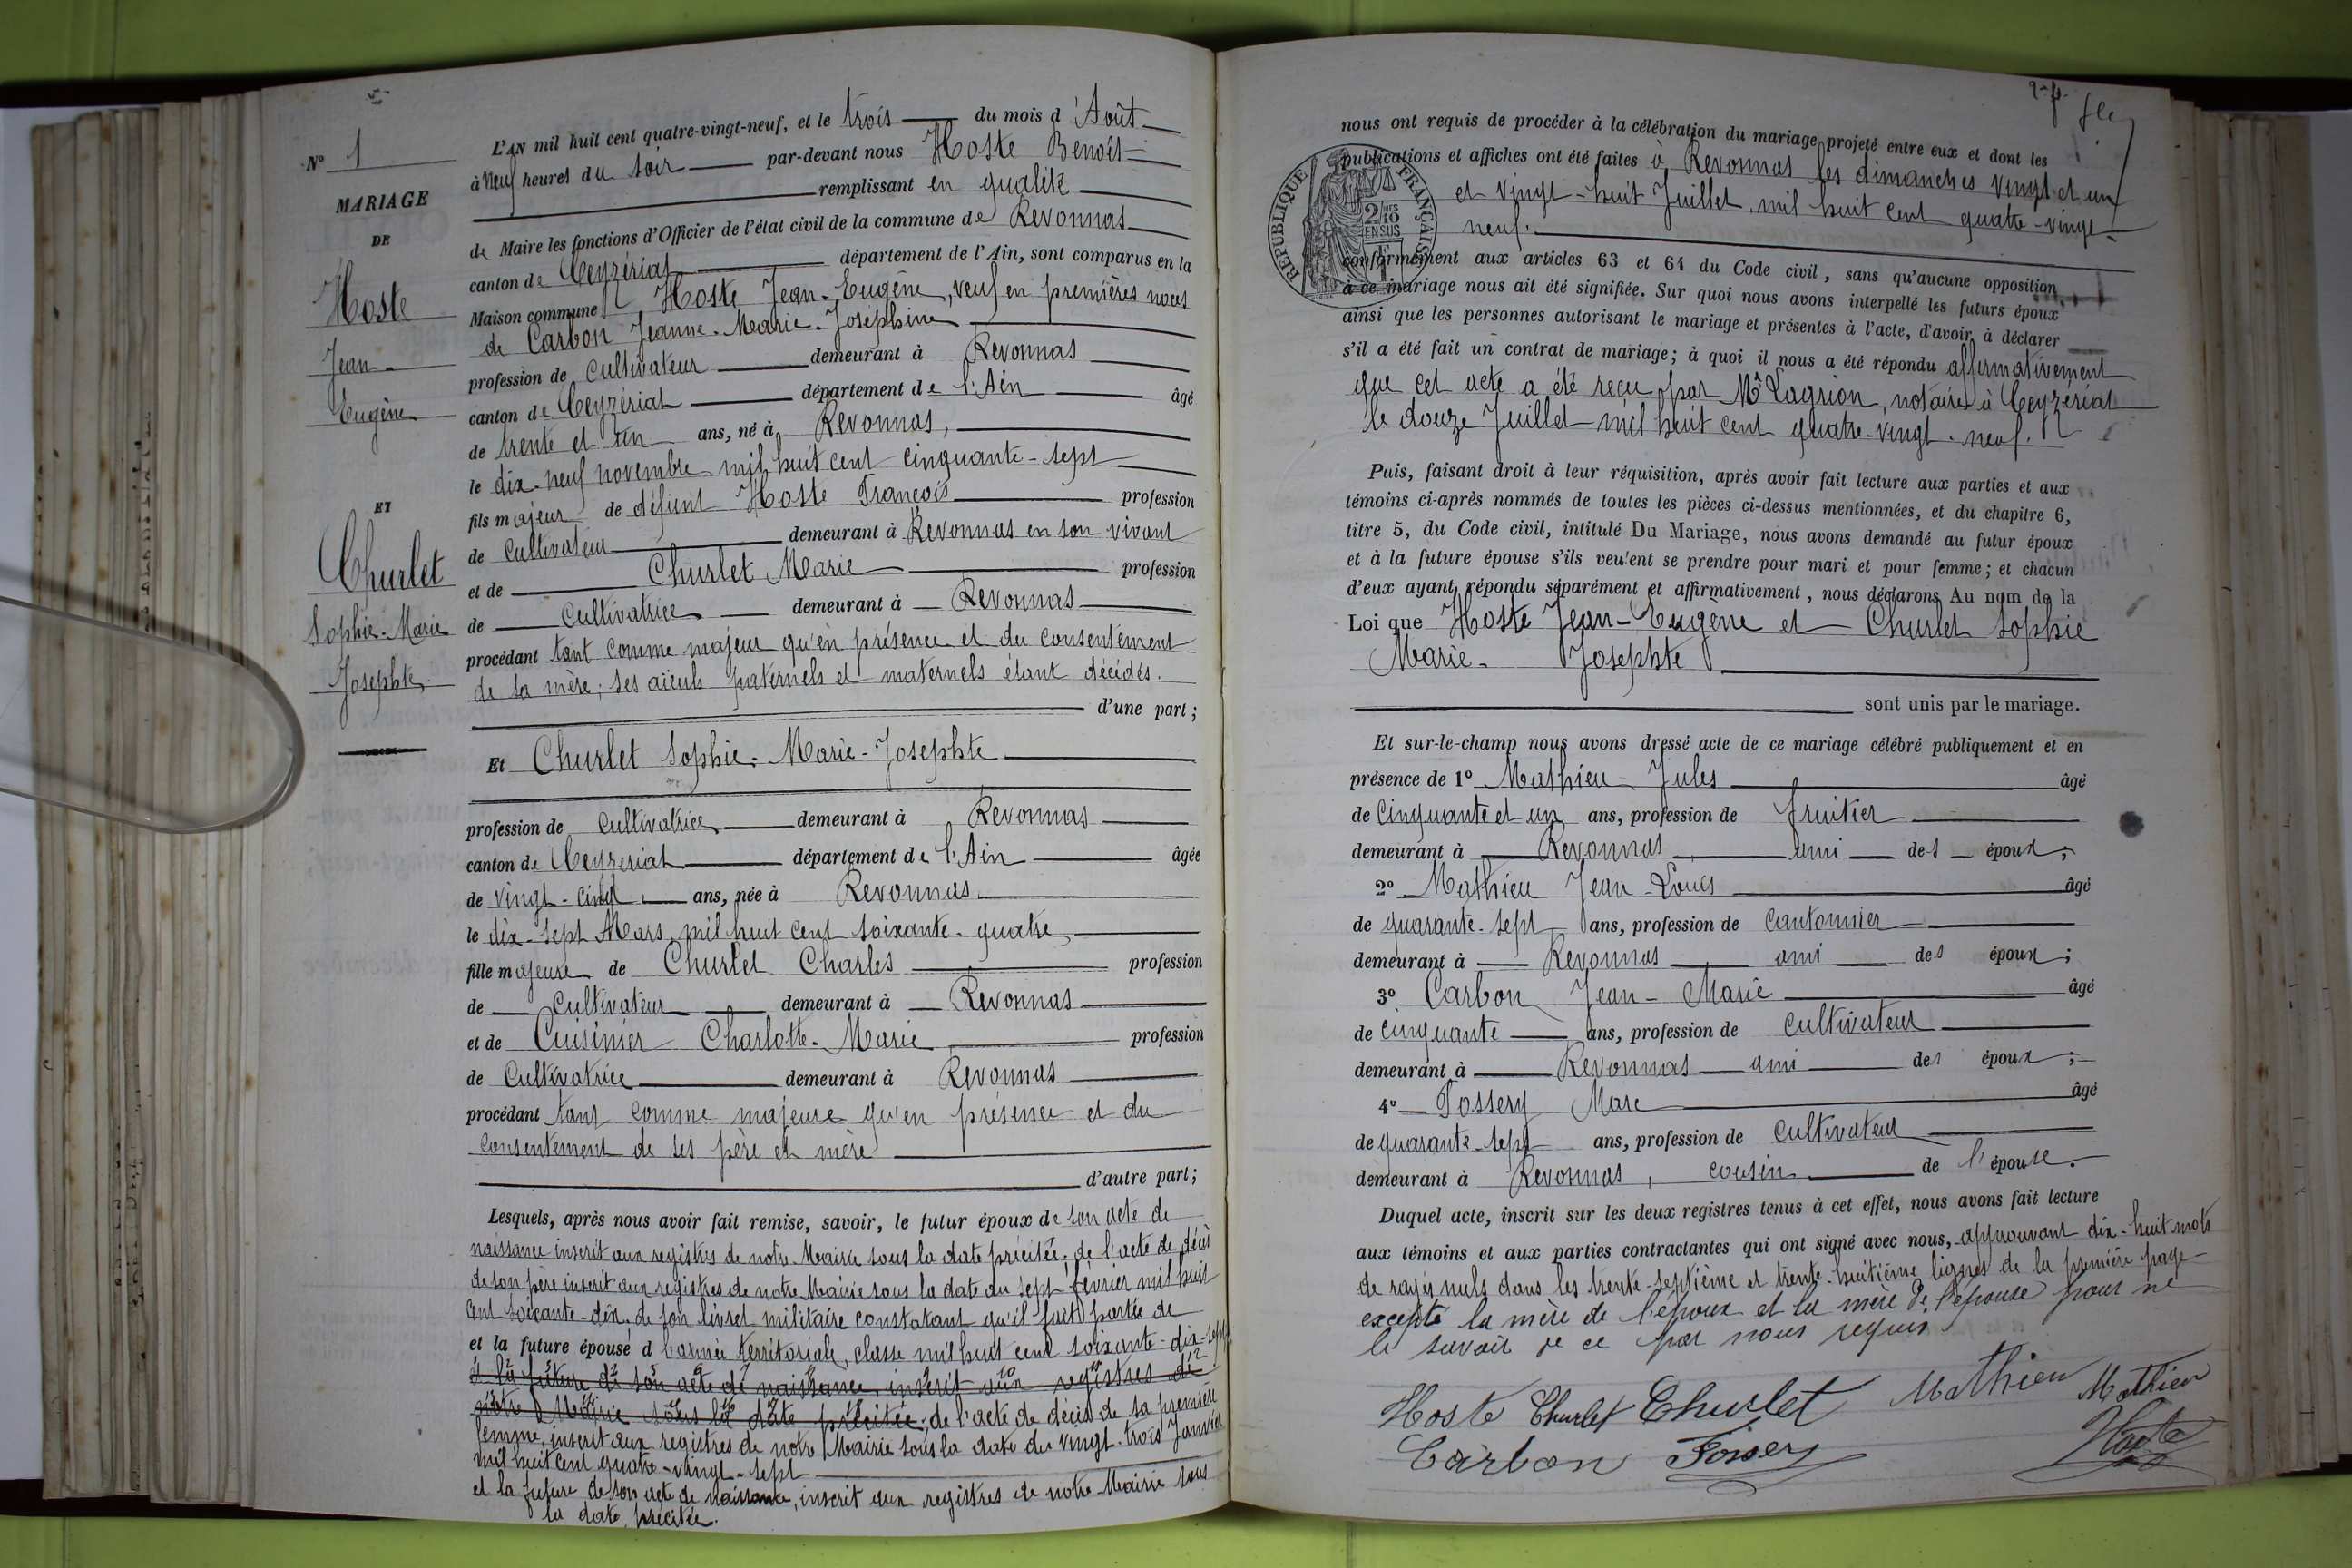 N° 1
MARIAGE
DE
Hoste
Jean
Eugène
ET
Churlet
Sophie-Marie
Josephte
L'AN mil huit cent quatre-vingt-neuf, et le trois du mois d'Août
à neuf heures du soir par-devant nous Hoste Benoît
remplissant en qualité
de Maire les fonctions d'Officier de l'état civil de la commune de Revonnas
canton de Ceyzériat département de l'Ain, sont comparus en la
Maison commune Hoste Jean-Eugène, veuf en premières noces
de Carbon Jeanne-Marie-Josephine
profession de Cultivateur demeurant à Revonnas
canton de Ceyzériat département de l'Ain âgé
de trente et un ans, né à Revonnas,
le dix-neuf novembre mil huit cent cinquante-sept
fils majeur de défunt Hoste François profession
de Cultivateur demeurant à Revonnas en son vivant
et de Churlet Marie profession
de Cultivatrice demeurant à Revonnas
procédant tant comme majeur qu'en présence et du consentement
de sa mère; ses aïeuls paternels et maternels étant décédés.
d'une part;
Et Churlet Sophie-Marie-Josephte
profession de Cultivatrice demeurant à Revonnas
canton de Ceyzeriat département de l'Ain âgée
de vingt-cinq ans, née à Revonnas
le dix-sept Mars mil huit cent soixante-quatre
fille majeure de Churlet Charles profession
de Cultivateur demeurant à Revonnas
et de Cuisinier Charlotte-Marie profession
de Cultivatrice demeurant à Revonnas
procédant tant comme majeure qu'en présence et du
consentement de ses père et mère
d'autre part;
Lesquels, après nous avoir fait remise, savoir, le futur époux de son acte de
naissance inscrit aux registres de notre Mairie sous la date précitée; de l'acte de décès
de son père inscrit aux registres de notre Mairie sous la date du sept février mil huit
cent soixante-dix; de son livret militaire constatant qu'il fait partie de
et la future épouse d l'armée territoriale, classe mil huit cent soixante-dix-sept
et la future de son acte de naissance, inscrit aux registres de
notre Mairie sous la date précitée; de l'acte de décès de sa première
femme, inscrit aux registres de notre Mairie sous la date du vingt-trois Janvier
mil huit cent quatre-vingt-sept
et la future de son acte de naissance, inscrit aux registres de notre Mairie sous
la date précitée.
nous ont requis de procéder à la célébration du mariage projeté entre eux et dont les
publications et affiches ont été faites à Revonnas les dimanches vingt et un
et vingt-huit Juillet mil huit cent quatre-vingt
neuf.
RÉPUBLIQUE FRANÇAISE
2/10 EN SUS
conformément aux articles 63 et 64 du Code civil, sans qu'aucune opposition
à ce mariage nous ait été signifiée. Sur quoi nous avons interpellé les futurs époux
ainsi que les personnes autorisant le mariage et présentes à l'acte, d'avoir à déclarer
s'il a été fait un contrat de mariage; à quoi il nous a été répondu affirmativement
que cet acte a été reçu par Mr Lagrion, notaire à Ceyzériat
le douze Juillet mil huit cent quatre-vingt-neuf.
Puis, faisant droit à leur réquisition, après avoir fait lecture aux parties et aux
témoins ci-après nommés de toutes les pièces ci-dessus mentionnées, et du chapitre 6,
titre 5, du Code civil, intitulé Du Mariage, nous avons demandé au futur époux
et à la future épouse s'ils veulent se prendre pour mari et pour femme; et chacun
d'eux ayant répondu séparément et affirmativement, nous déclarons Au nom de la
Loi que Hoste Jean-Eugène et Churlet Sophie
Marie-Josephte
sont unis par le mariage.
Et sur-le-champ nous avons dressé acte de ce mariage célébré publiquement et en
présence de 1° Mathieu Jules âgé
de cinquante et un ans, profession de fruitier
demeurant à Revonnas ami des époux;
2° Mathieu Jean-Louis âgé
de quarante-sept ans, profession de cantonnier
demeurant à Revonnas ami des époux;
3° Carbon Jean-Marie âgé
de cinquante ans, profession de cultivateur
demeurant à Revonnas ami des époux;
4° Fossery Marc âgé
de quarante-sept ans, profession de cultivateur
demeurant à Revonnas, cousin de l'épouse.
Duquel acte, inscrit sur les deux registres tenus à cet effet, nous avons fait lecture
aux témoins et aux parties contractantes qui ont signé avec nous, approuvant dix-huit mots
de rayés nuls dans les trente-septième et trente-huitième lignes de la première page
excepté la mère de l'époux et la mère de l'épouse pour ne
le savoir de ce par nous requis
Hoste Churlet Churlet Mathieu Mathieu
Carbon Hoste